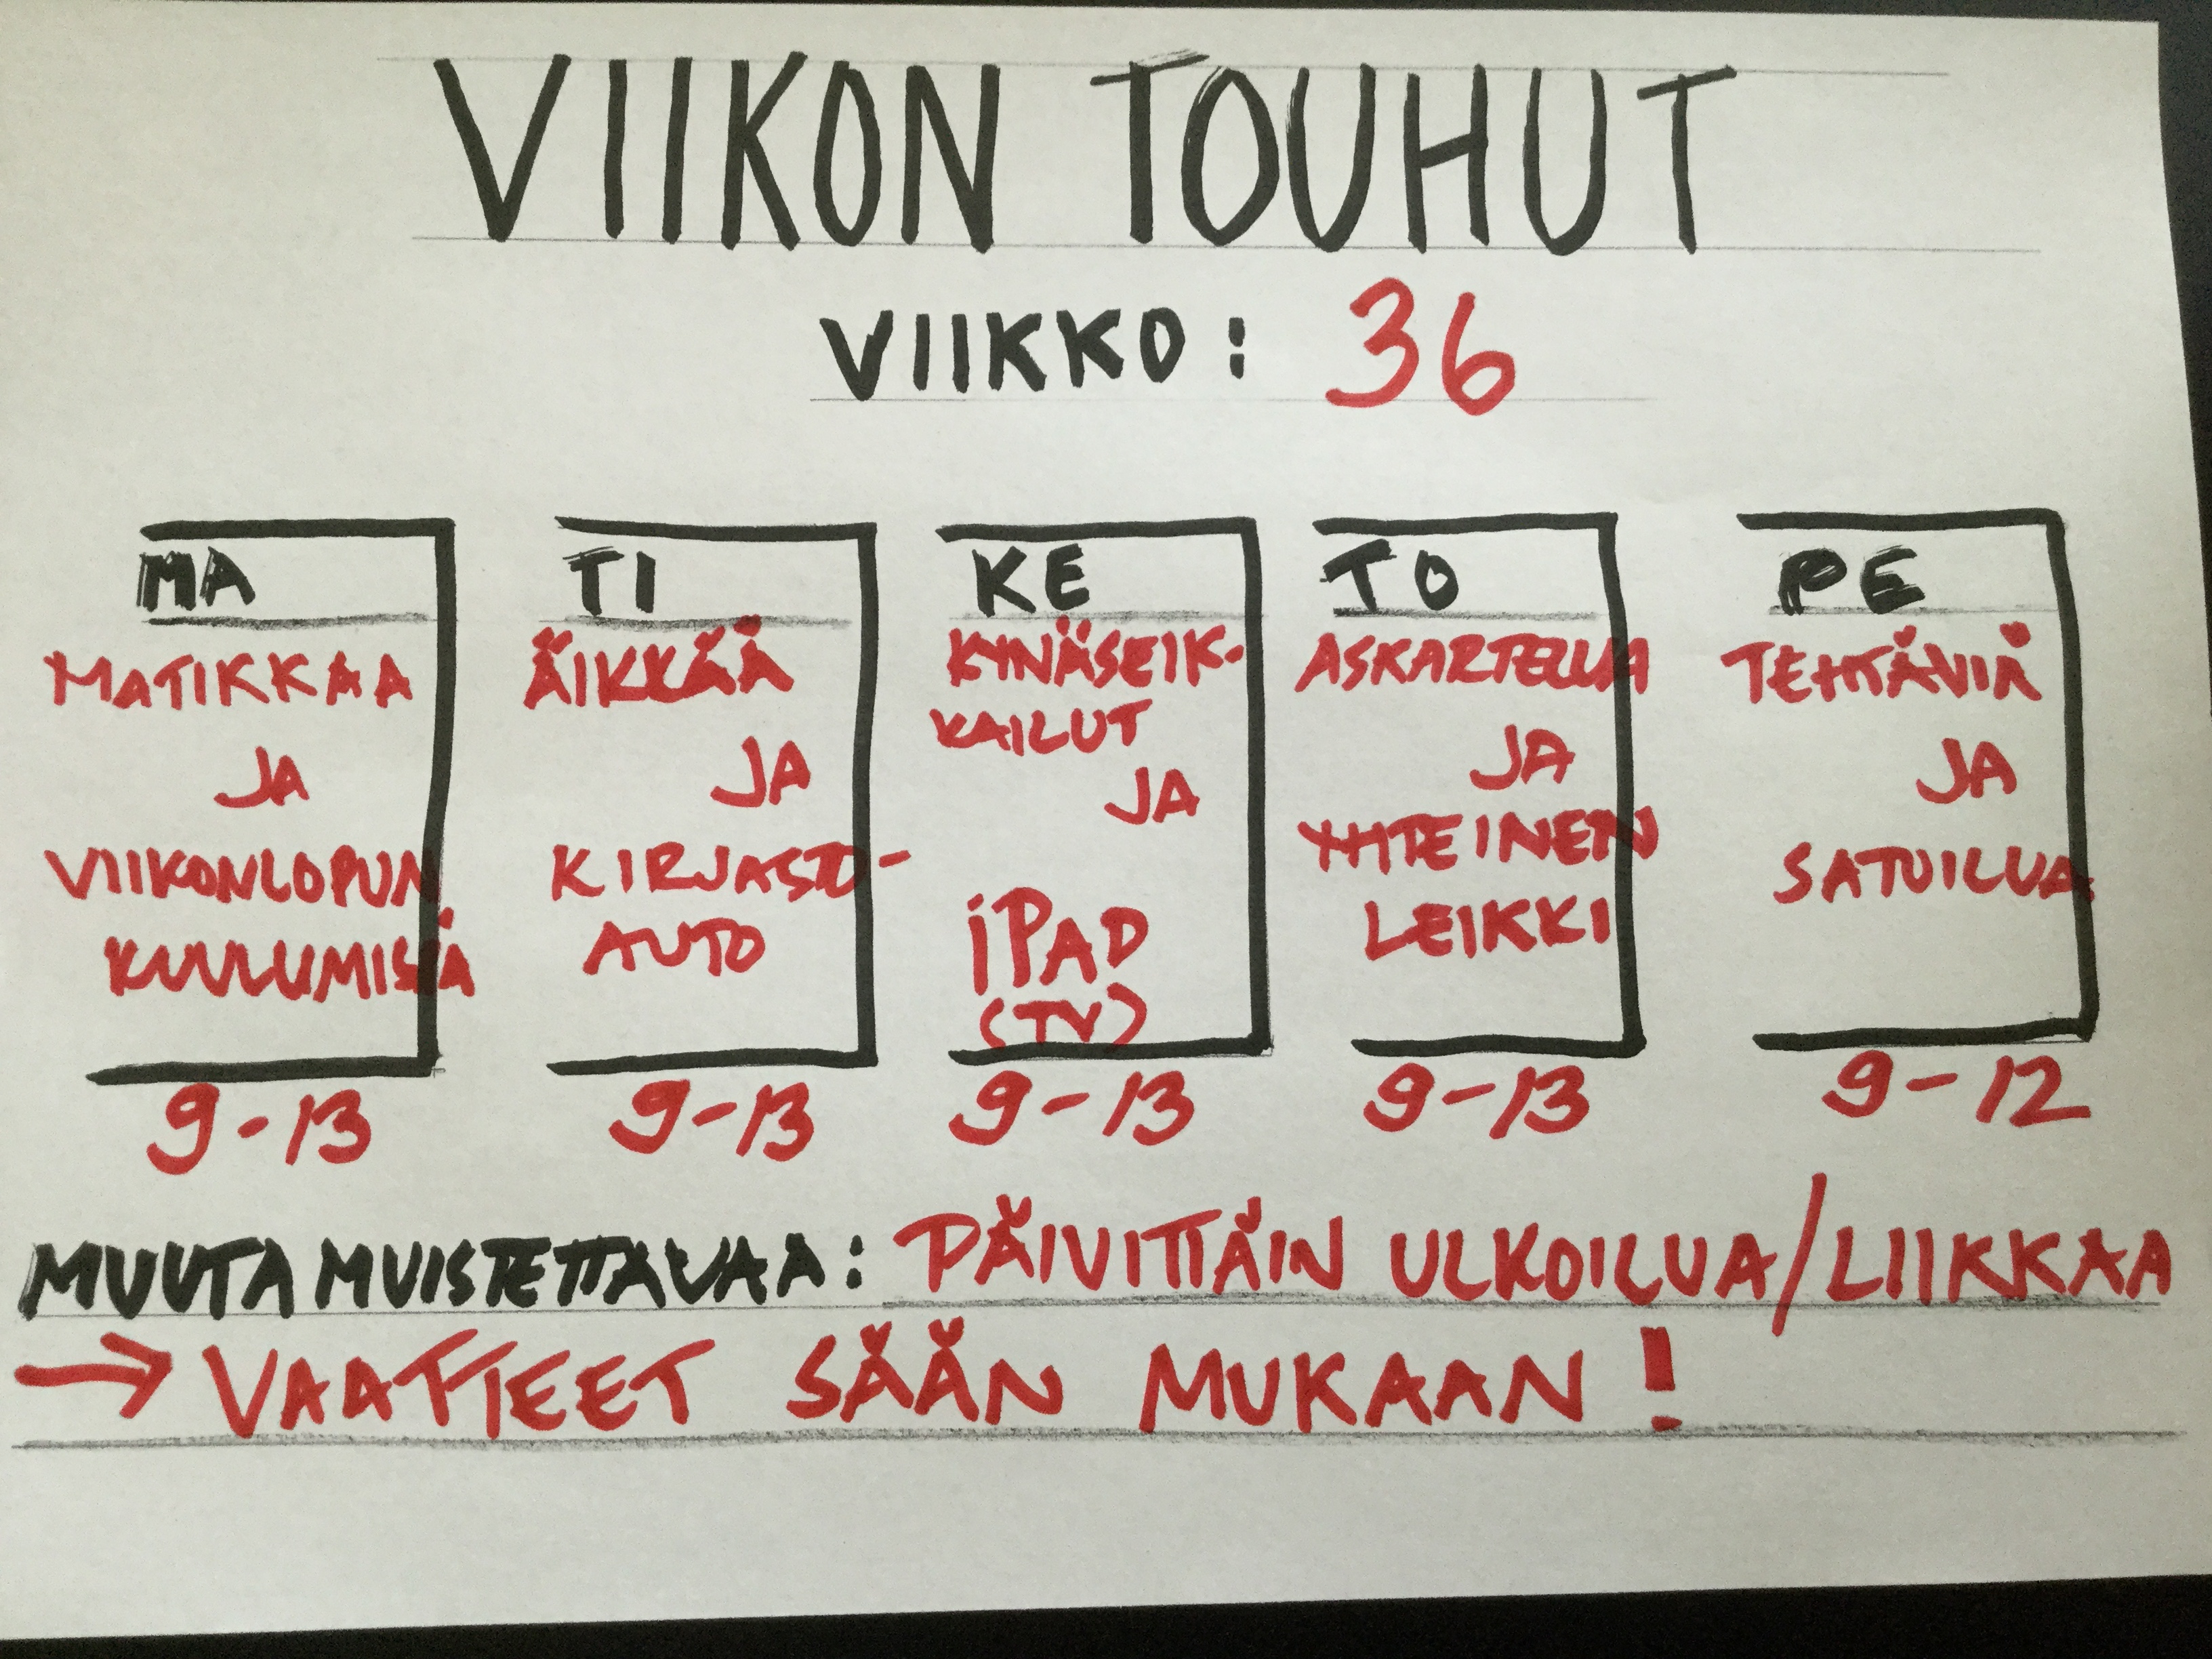 VIIKON TOUHUT
VIIKKO: 36
MA
MATIKKAA
JA
VIIKONLOPUN
KUULUMISIA
9-13
TI
ÄIKKÄÄ
JA
KIRJASTO-
AUTO
9-13
KE
KYNÄSEIK-
KAILUT
JA
iPAD
(TV)
9-13
TO
ASKARTELUA
JA
YHTEINEN
LEIKKI
9-13
PE
TEHTÄVIÄ
JA
SATUILUA
9-12
MUUTA MUISTETTAVAA: PÄIVITTÄIN ULKOILUA/LIIKKAA
→ VAATTEET SÄÄN MUKAAN!